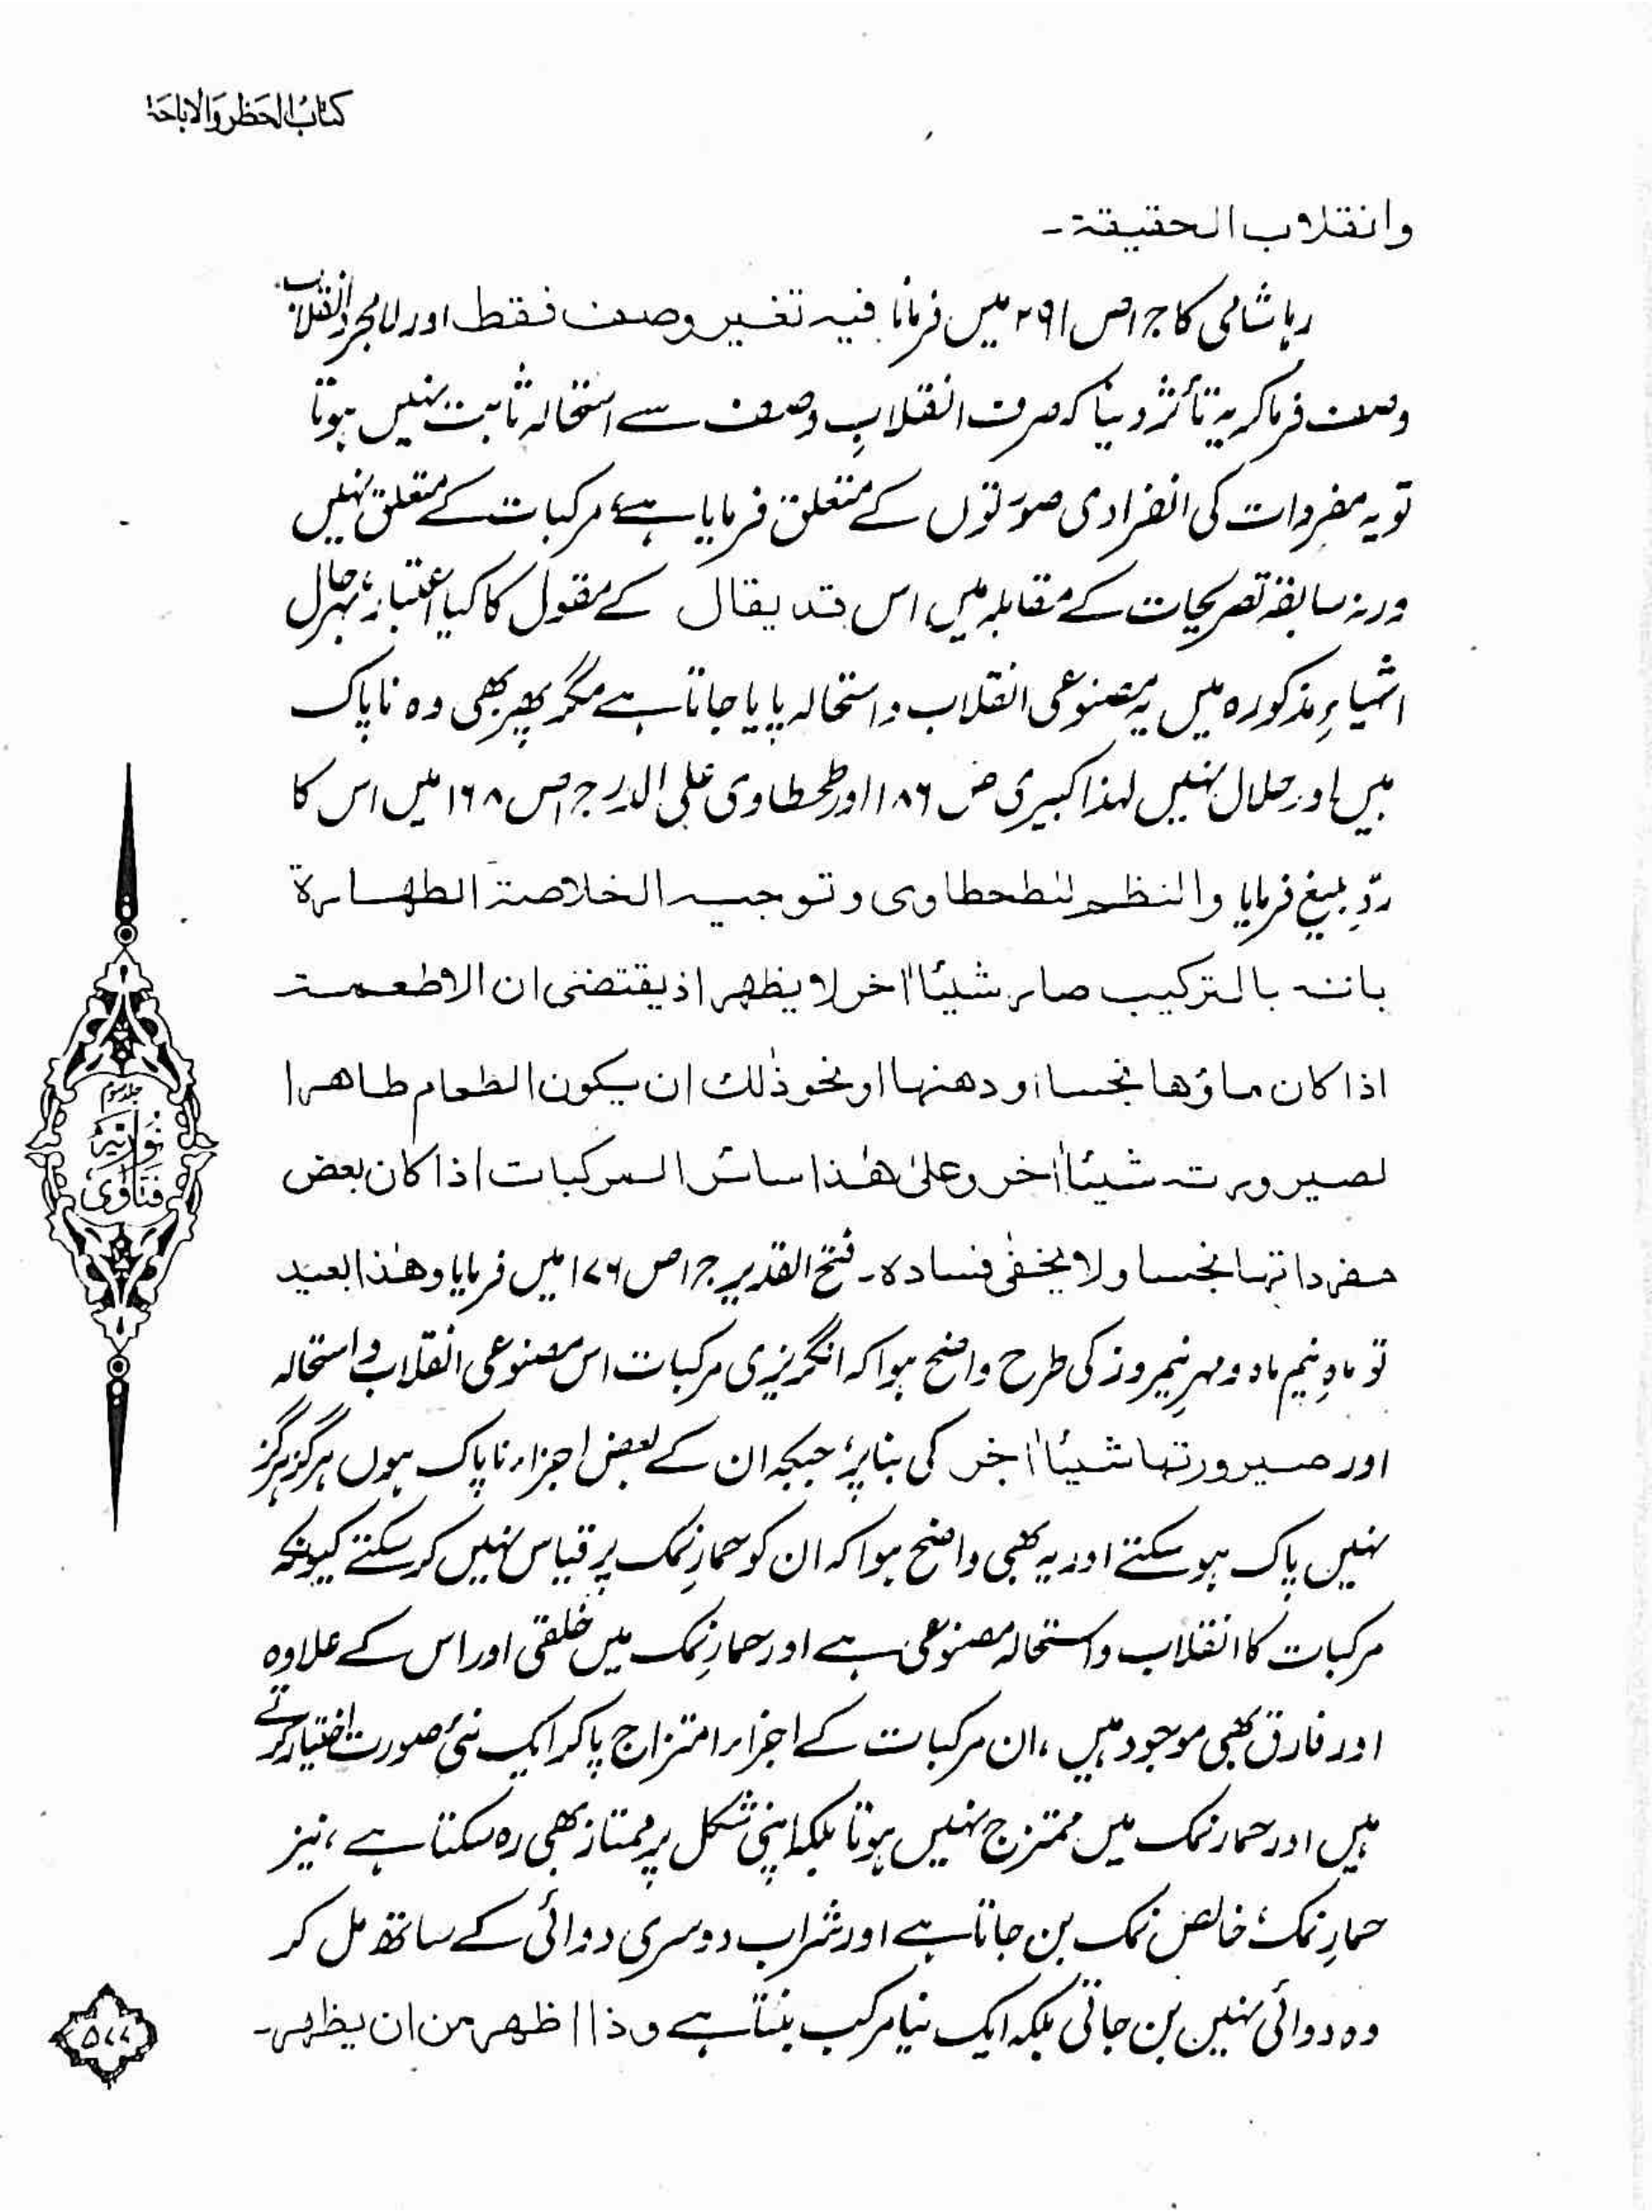 کتابُ الحَظر وَالاباحَۃ
وانقلاب الحقیقۃ۔
رہا شامی کا ج ۱ ص ۲۹۱ میں فرمانا فیہ تغیر وصف فقط اور لا مجرد انقلاب
وصف فرما کر یہ تأثر دینا کہ صرف انقلابِ وصف سے استحالہ ثابت نہیں ہوتا
تو یہ مفردات کی انفرادی صورتوں کے متعلق فرمایا ہے، مرکبات کے متعلق نہیں
ورنہ سابقہ تصریحات کے مقابلہ میں اس قد یقال کے مقول کا کیا اعتبار؟ بہرحال
اشیاءِ مذکورہ میں یہ مصنوعی انقلاب و استحالہ پایا جاتا ہے مگر پھر بھی وہ ناپاک
ہیں اور حلال نہیں لہذا کبیری ص ۱۸۶ اور طحطاوی علی الدرر ج ۱ ص ۱۶۸ میں اس کا
ردِّ بلیغ فرمایا والنظم للطحطاوی وتوجیہ الخلاصۃ الطھارۃ
بانہ بالترکیب صار شیئًا اٰخر لا یظھر اذ یقتضی ان الاطعمۃ
اذا کان ماؤھا نجسا او دھنہا او نحو ذٰلک ان یکون الطعام طاھرا
لصیرورتہ شیئًا اٰخر وعلیٰ ھٰذا سائر المرکبات اذا کان بعض
مفرداتہا نجسا ولا یخفٰی فسادہ۔ فتح القدیر ج ۱ ص ۱۷۶ میں فرمایا وھٰذا بعید
تو ماہِ نیم ماہ و مہرِ نیمروز کی طرح واضح ہوا کہ انگریزی مرکبات اس مصنوعی انقلاب و استحالہ
اور صیرورتہا شیئًا اٰخر کی بناپر، جبکہ ان کے بعض اجزاء ناپاک ہوں ہرگز ہرگز
نہیں پاک ہو سکتے اور یہ بھی واضح ہوا کہ ان کو حمارِ نمک پر قیاس نہیں کر سکتے کیونکہ
مرکبات کا انقلاب و استحالہ مصنوعی ہے اور حمارِ نمک میں خلقی اور اس کے علاوہ
اور فارق بھی موجود ہیں، ان مرکبات کے اجزاء امتزاج پاکر ایک نئی صورت اختیار کرتے
ہیں اور حمار نمک میں ممتزج نہیں ہوتا بلکہ اپنی شکل پر ممتاز بھی رہ سکتا ہے، نیز
حمارِ نمک، خالص نمک بن جاتا ہے اور شراب دوسری دوائی کے ساتھ مل کر
وہ دوائی نہیں بن جاتی بلکہ ایک نیا مرکب بنتا ہے وذا اظھر من ان یظھر۔
جلد سوم
فتاوٰی
نوریہ
۵۷۷